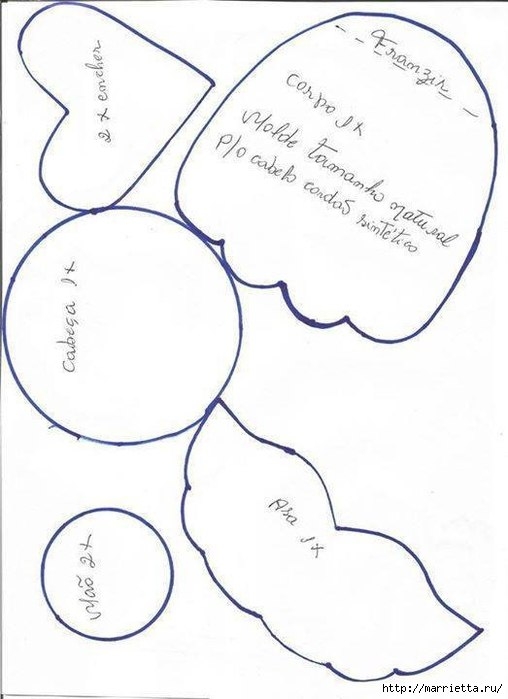 2 x encher
Franzir
corpo 1x
Molde tamanho natural
p/o cabelo cordão sintético
Cabeça 1x
Asa 1x
Mão 2x
http://marrietta.ru/